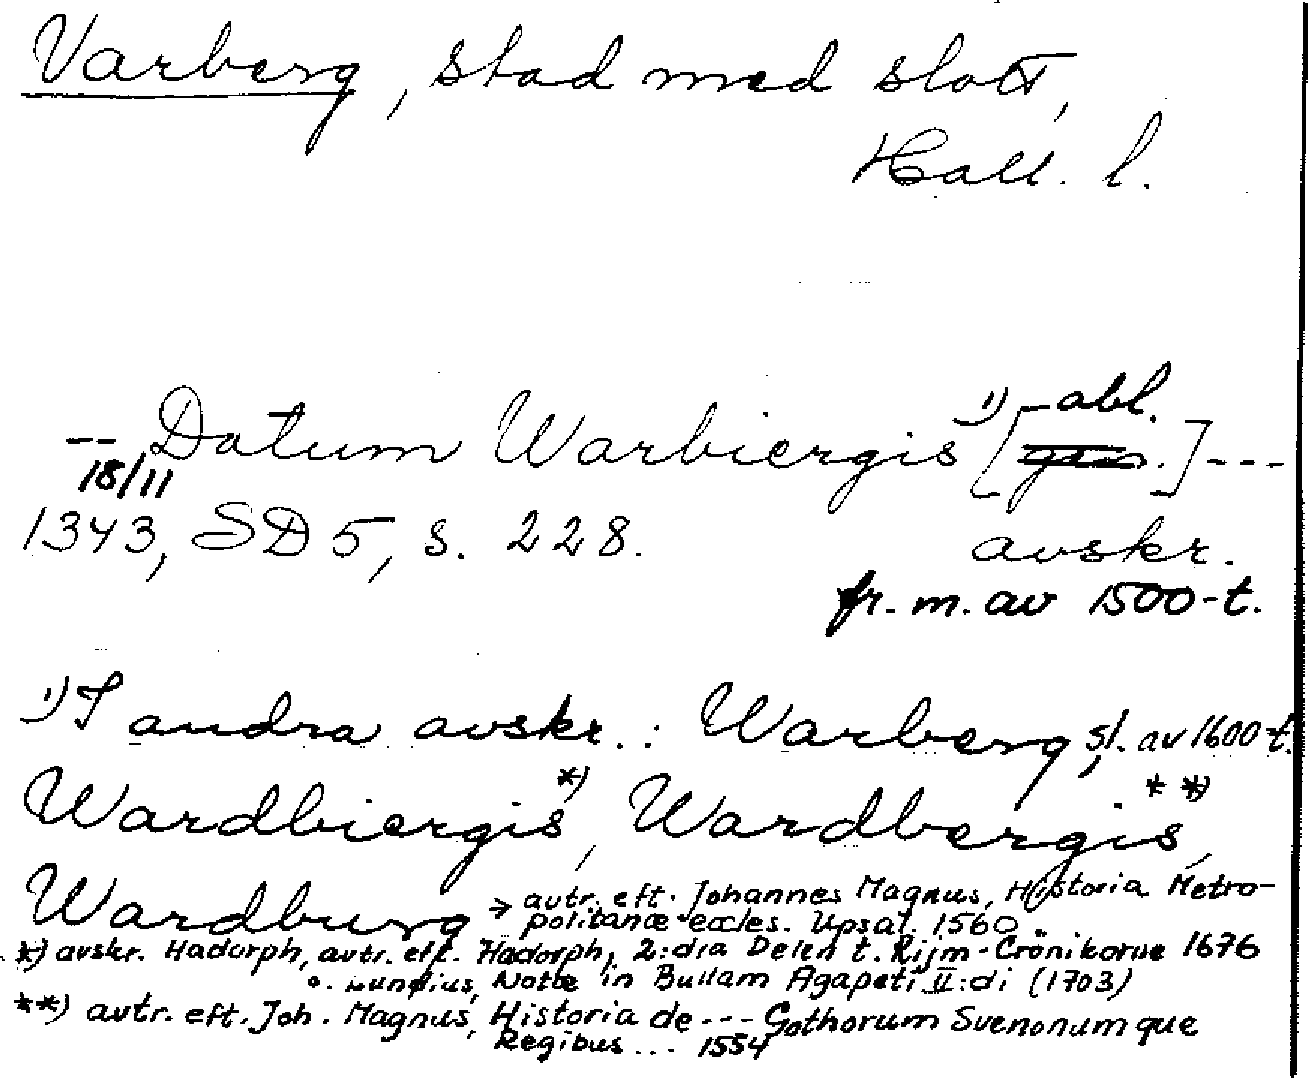 Varberg, stad med slott,
Hall. l.
-- Datum Warbiergis ¹) [abl.] ---
18/11
1343, SD 5, s. 228.
avskr.
fr. m. av 1500-t.
¹) I andra avskr.: Warberg, sl. av 1600-t.
Wardbiergis *), Wardbergis **),
Wardburg → avtr. eft. Johannes Magnus, Historia Metro-
politanæ eccles. Upsal. 1560
*) avskr. Hadorph, avtr. eft. Hadorph, 2:dra Delen t. Rijm-Crönikorne 1676
o. Lundius, Notæ in Bullam Agapeti II:di (1703)
**) avtr. eft. Joh. Magnus, Historia de --- Gothorum Svenonumque
Regibus ... 1554